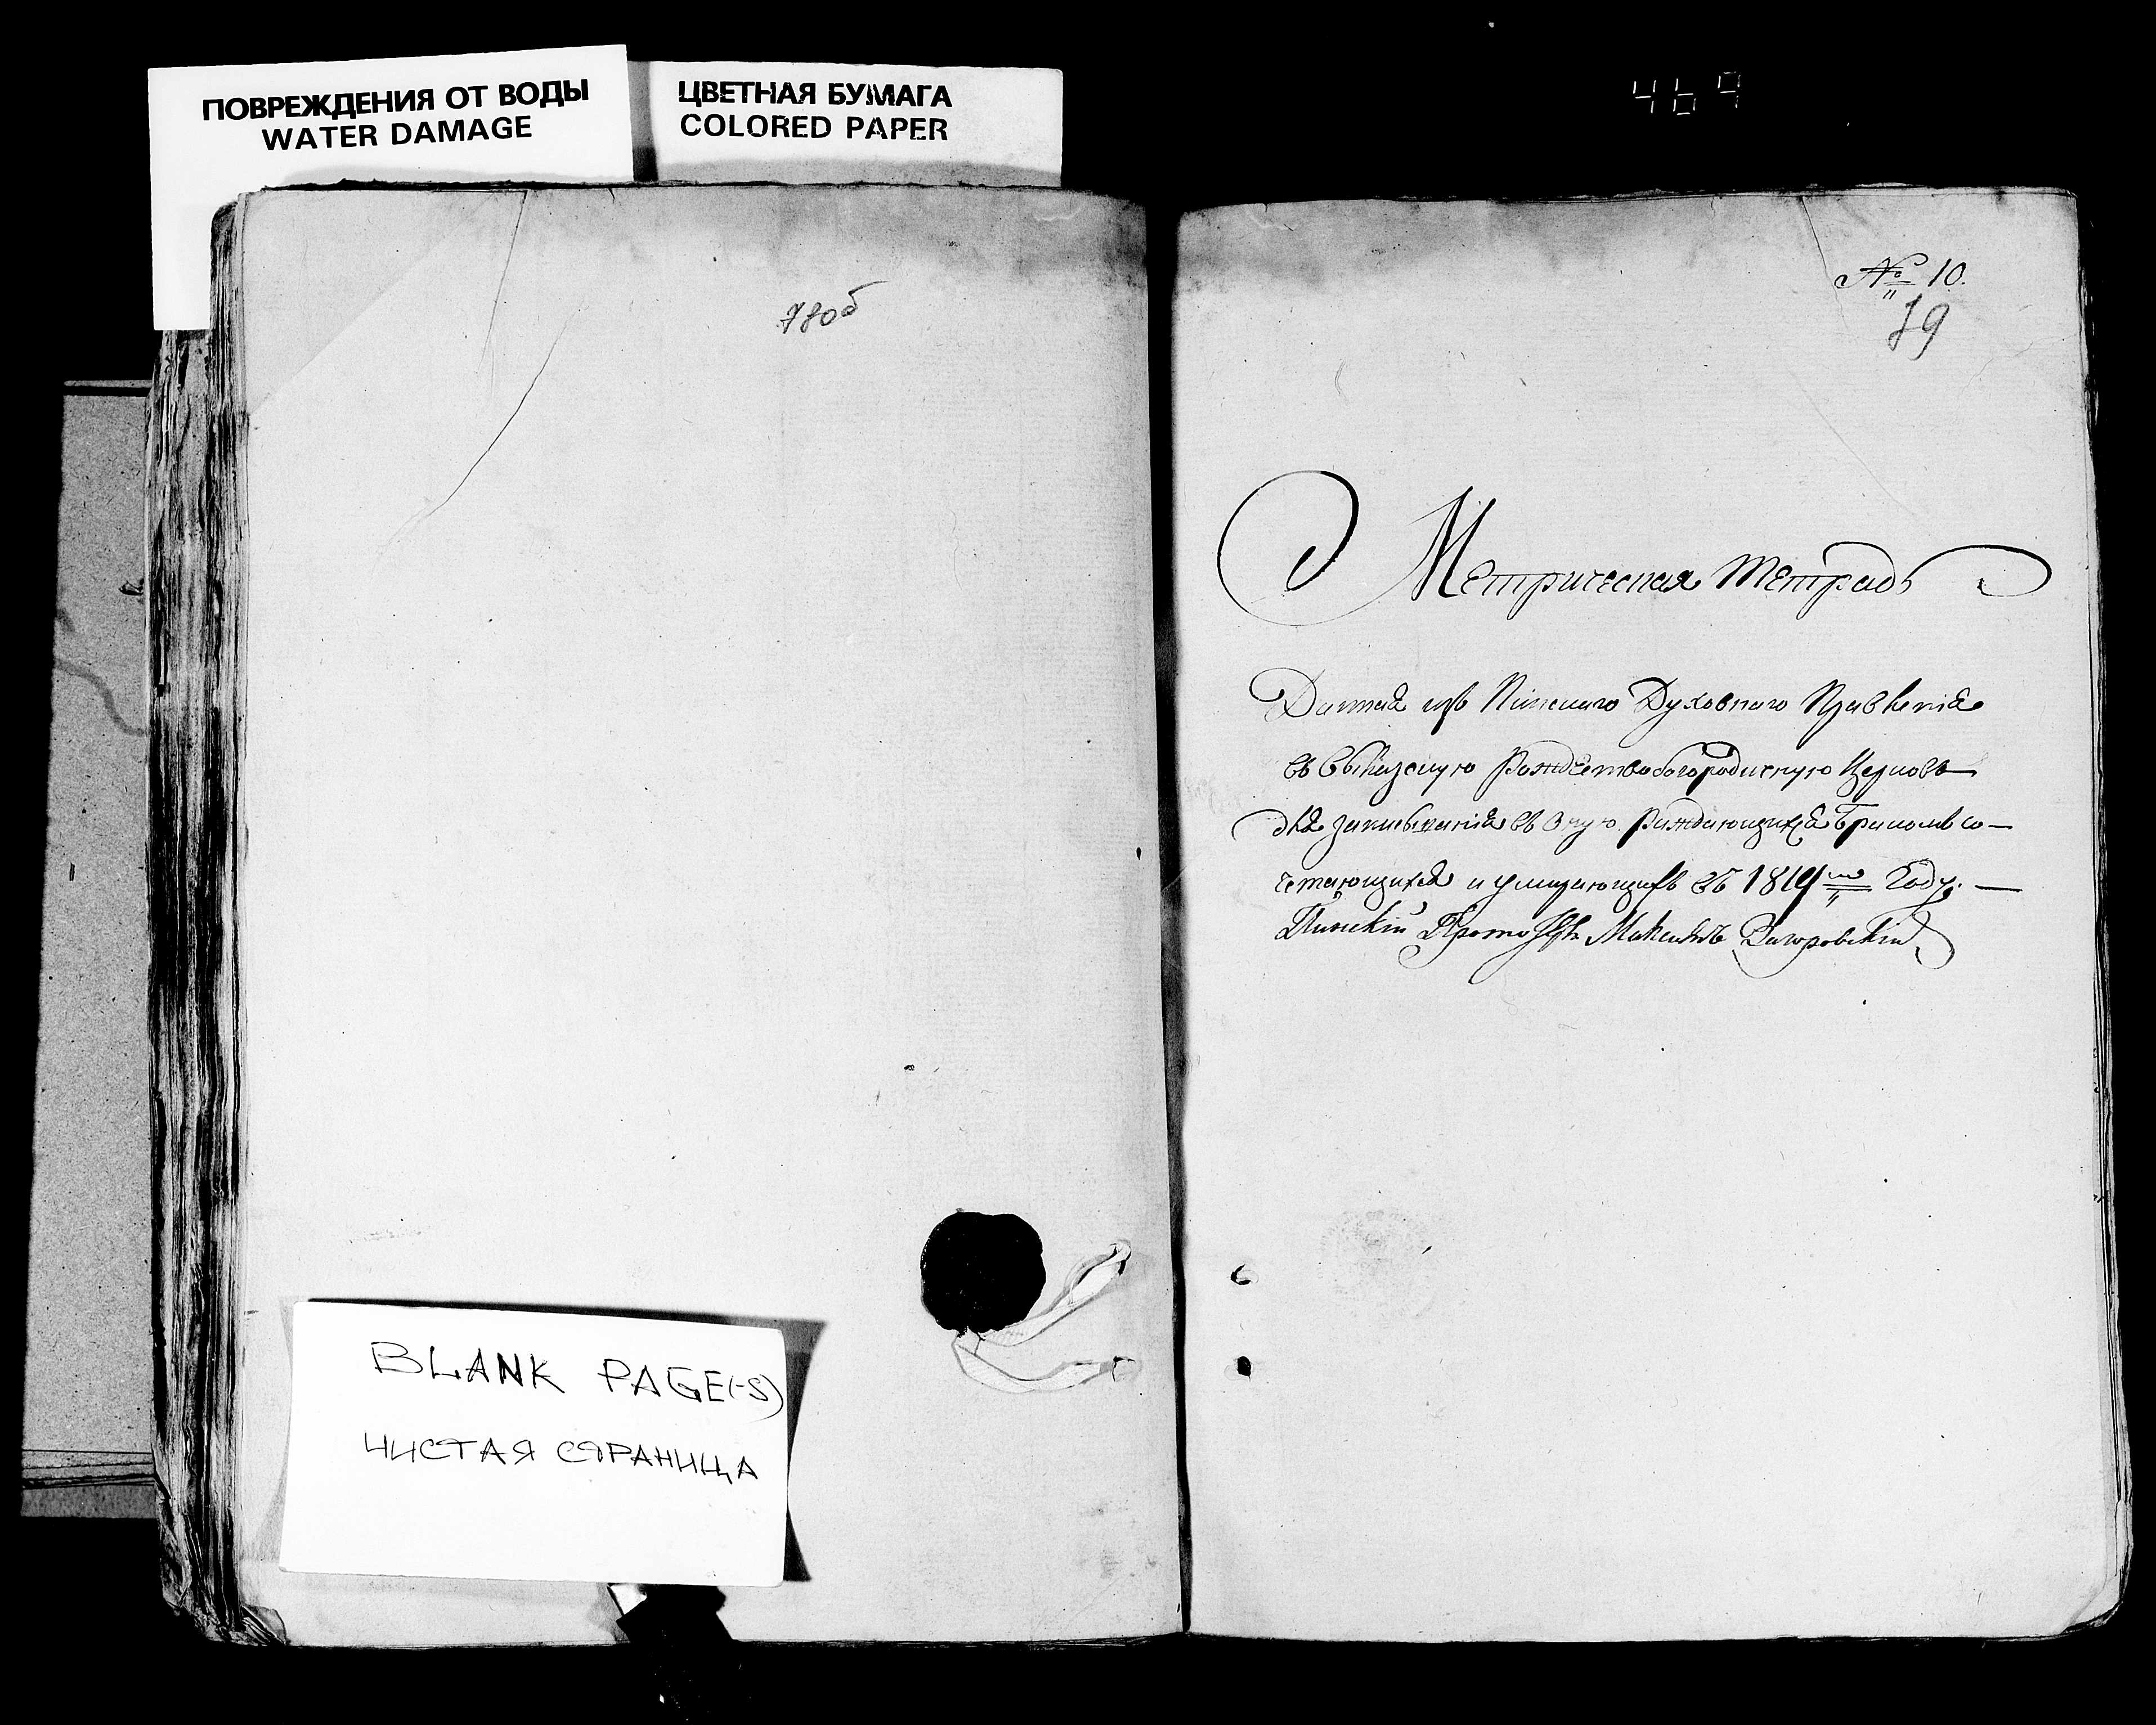 ПОВРЕЖДЕНИЯ ОТ ВОДЫ
WATER DAMAGE
ЦВЕТНАЯ БУМАГА
COLORED PAPER
469
78об
№ 10.
79
Метрическая тетрадь
Данная изъ Пинскаго Духовнаго Правленія
въ Рождествобогородичную Церковь
для записыванія въ оную раждающихся бракомъ со-
четающихся и умирающихъ въ 1819мъ Году. —
Пинскій Прото Максимъ Загоровскій
BLANK PAGE(-S)
ЧИСТАЯ СТРАНИЦА